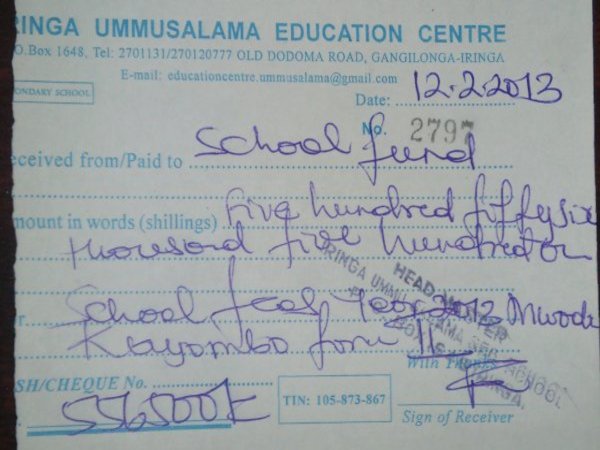 RINGA UMMUSALAMA EDUCATION CENTRE
.O.Box 1648, Tel: 2701131/270120777 OLD DODOMA ROAD, GANGILONGA-IRINGA
E-mail: educationcentre.ummusalama@gmail.com
ONDARY SCHOOL
Date: 12.2.2013
No. 2797
eceived from/Paid to School fund
mount in words (shillings) Five hundred fiffysix
thousand five hundred on
School fees 2013
Kayombo form II
HEAD MASTER
IRINGA UMMUSALAMA SEC SCHOOL
With Thanks
SH/CHEQUE No.
556500/=
TIN: 105-873-867
Sign of Receiver